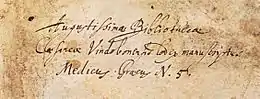 Augustissimæ Bibliothecæ
Cæsareæ Vindobonensis codex manuscriptus
Medicus Græcus N. 5.